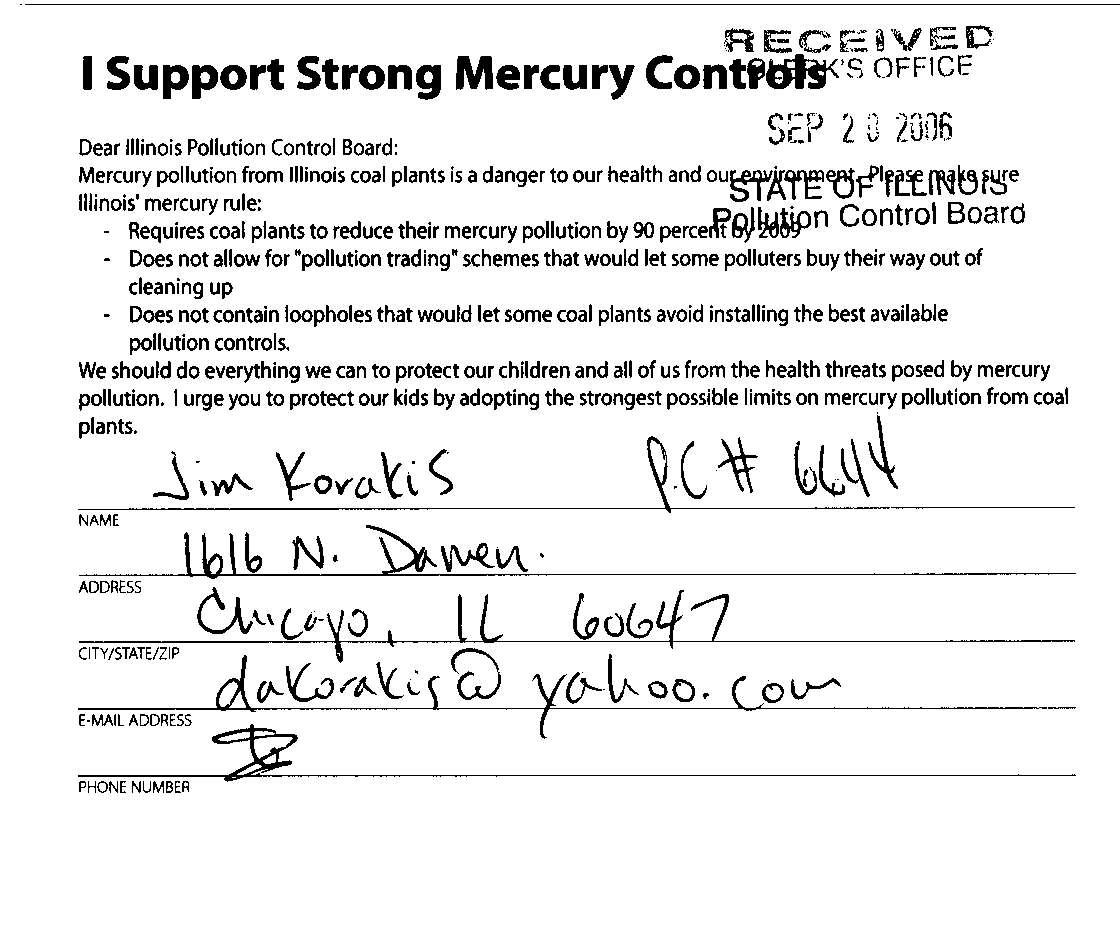 RECEIVED
CLERK'S OFFICE
I Support Strong Mercury Controls
SEP 20 2006
STATE OF ILLINOIS
Pollution Control Board
Dear Illinois Pollution Control Board:
Mercury pollution from Illinois coal plants is a danger to our health and our environment. Please make sure
Illinois' mercury rule:
- Requires coal plants to reduce their mercury pollution by 90 percent by 2009
- Does not allow for "pollution trading" schemes that would let some polluters buy their way out of
cleaning up
- Does not contain loopholes that would let some coal plants avoid installing the best available
pollution controls.
We should do everything we can to protect our children and all of us from the health threats posed by mercury
pollution. I urge you to protect our kids by adopting the strongest possible limits on mercury pollution from coal
plants.
Jim Korakis P.C # 6644
NAME
1616 N. Damen.
ADDRESS
Chicago, IL 60647
CITY/STATE/ZIP
dakorakis@yahoo.com
E-MAIL ADDRESS
PHONE NUMBER